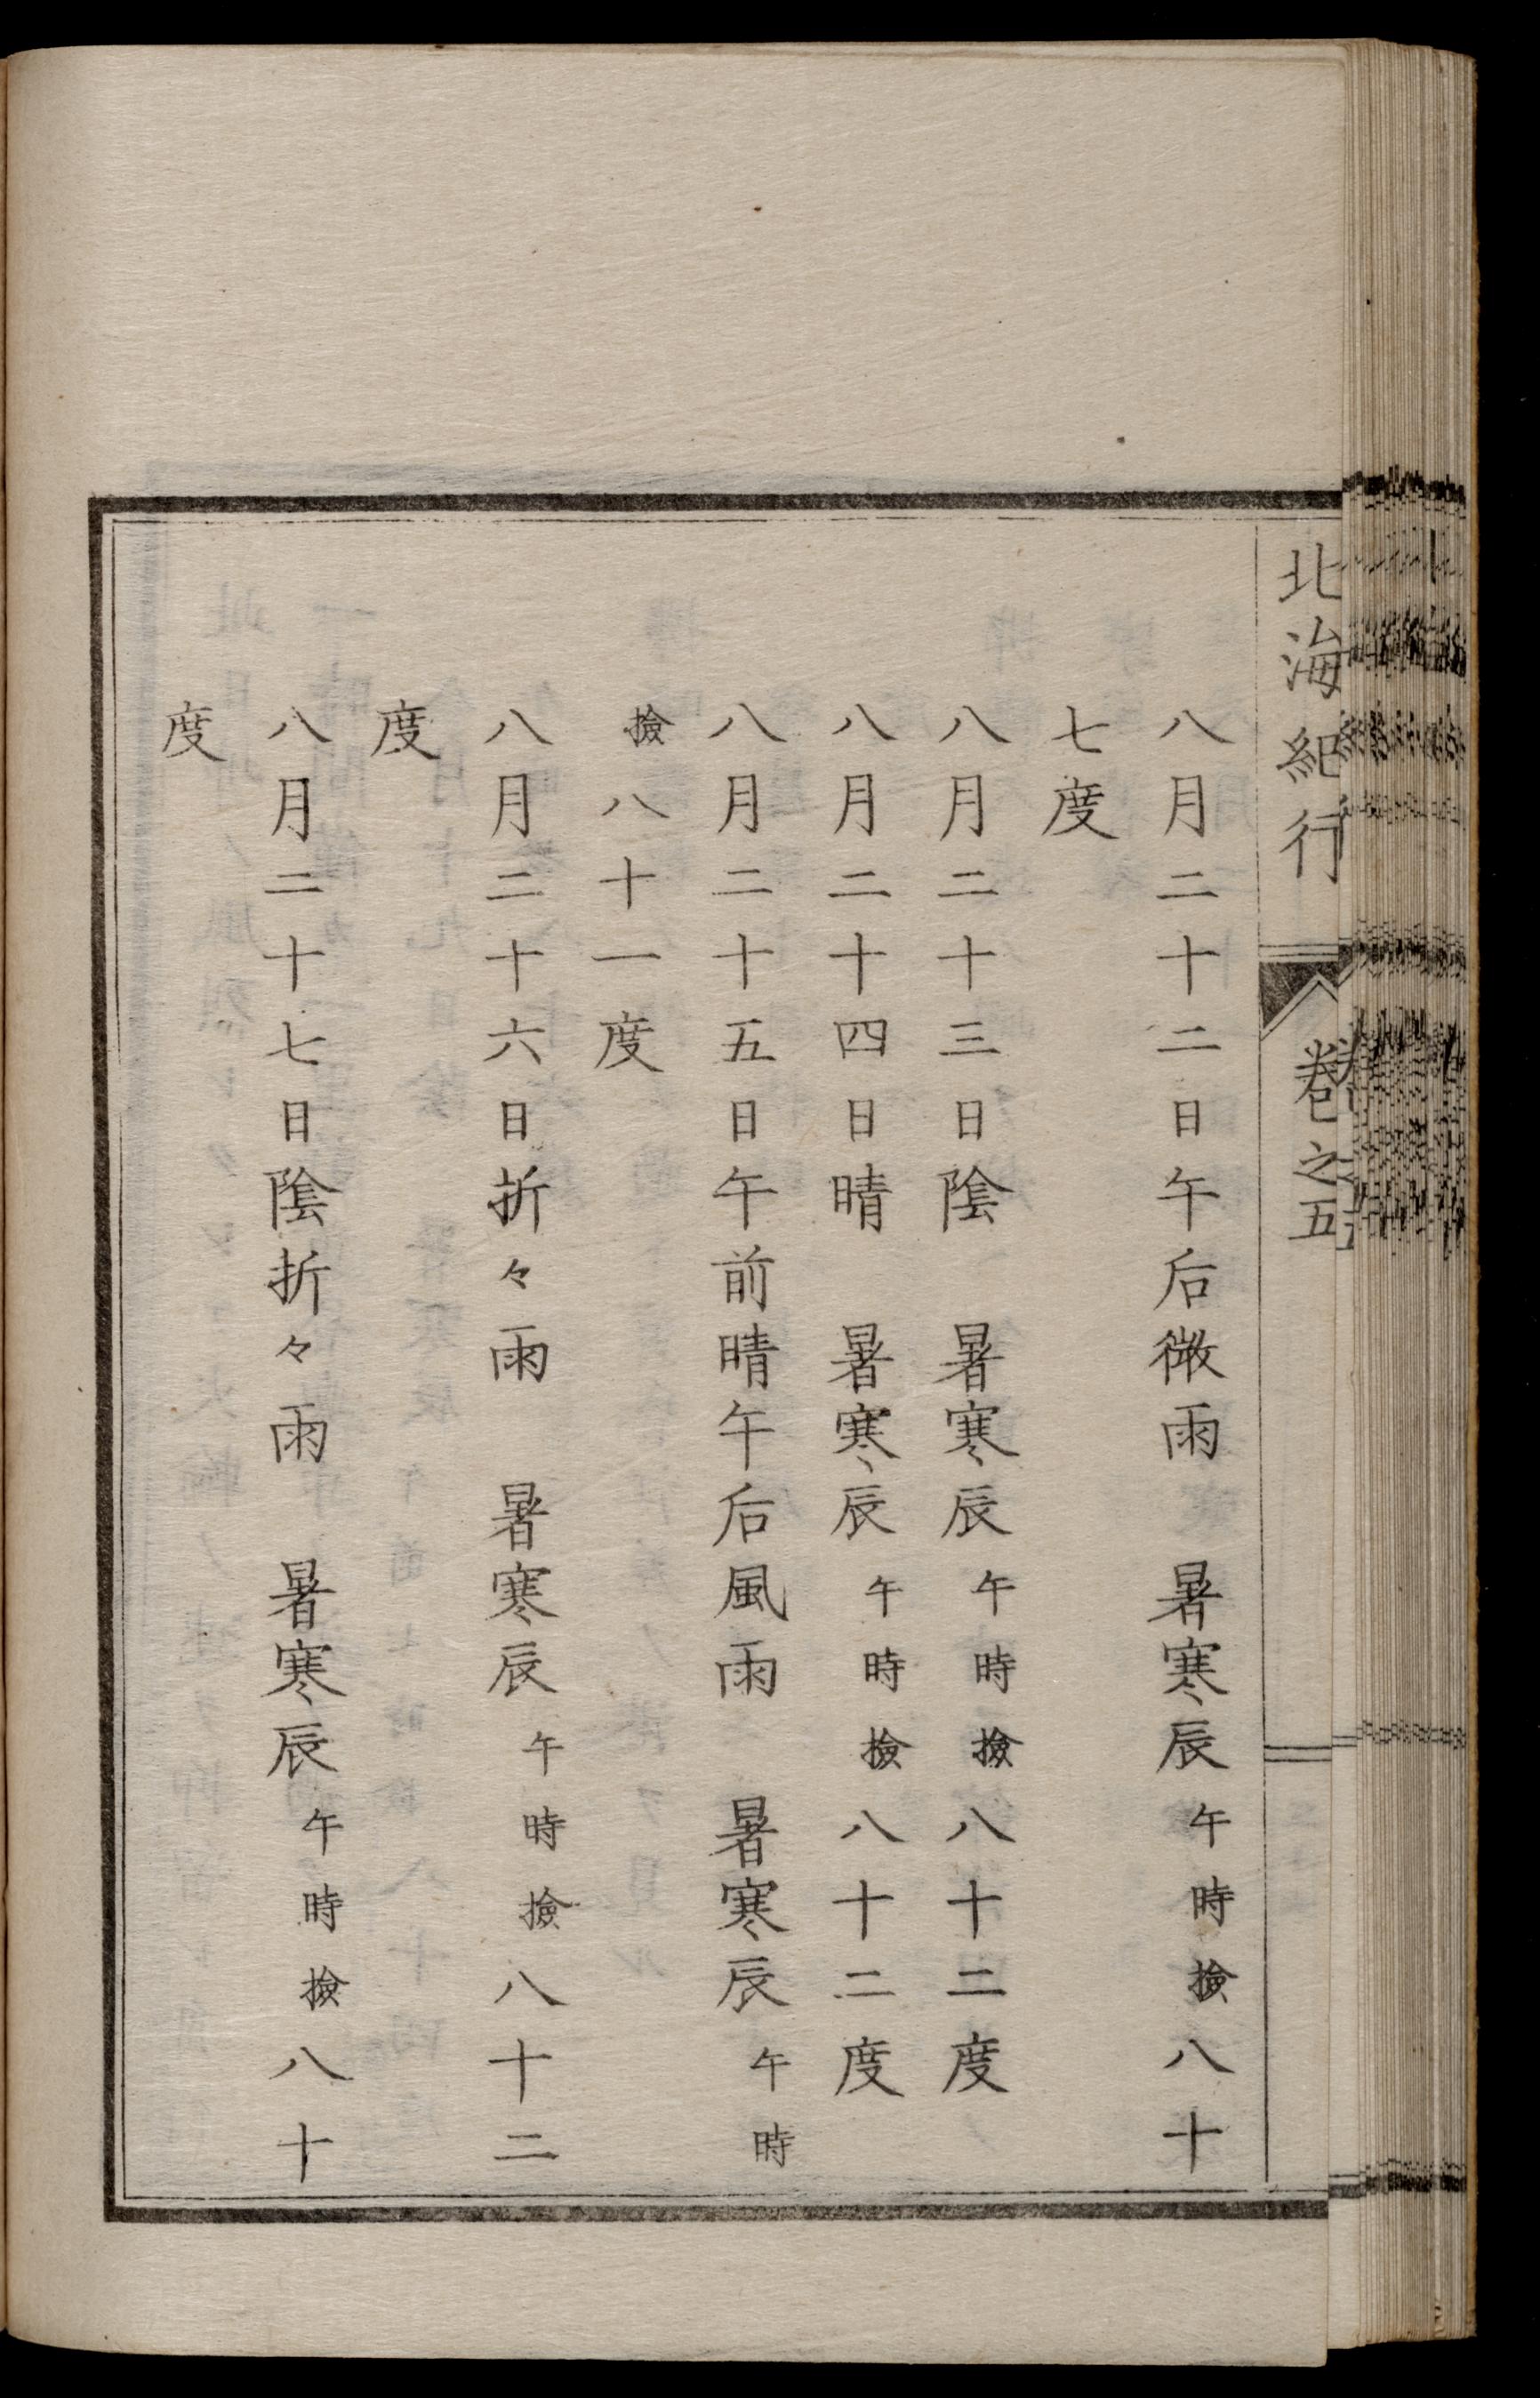 北海紀行
卷之五
八月二十二日午后微雨　暑寒辰午時撿八十
七度
八月二十三日陰　暑寒辰午時撿八十二度
八月二十四日晴　暑寒辰午時撿八十二度
八月二十五日午前晴午后風雨　暑寒辰午時
撿八十一度
八月二十六日折々雨　暑寒辰午時撿八十二
度
八月二十七日陰折々雨　暑寒辰午時撿八十
度